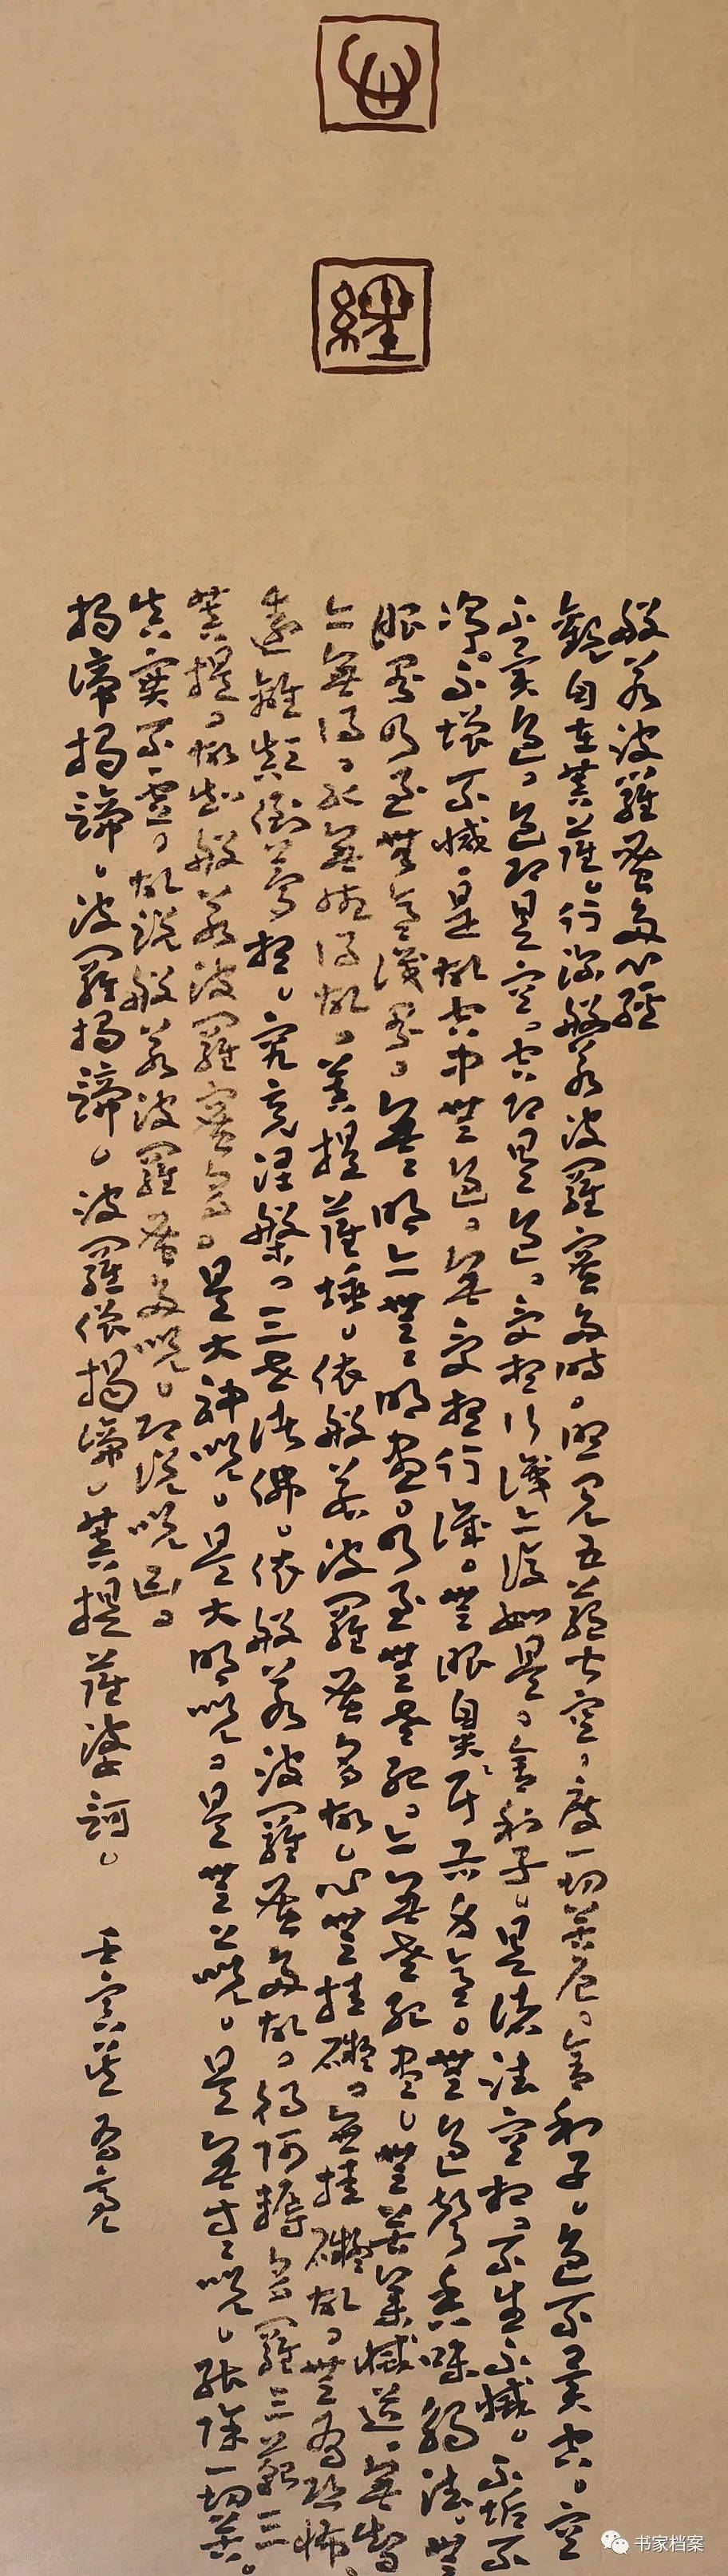 心
經
般若波羅蜜多心經
觀自在菩薩。行深般若波羅蜜多時。照見五蘊皆空。度一切苦厄。舍利子。色不異空。空
不異色。色即是空。空即是色。受想行識亦復如是。舍利子。是諸法空相。不生不滅。不垢不
淨。不增不減。是故空中無色。無受想行識。無眼鼻耳舌身意。無色聲香味觸法。無
眼界乃至無意識界。無無明亦無無明盡。乃至無老死。亦無老死盡。無苦集滅道。無智
亦無得。以無所得故。菩提薩埵。依般若波羅蜜多故。心無挂礙。無挂礙故。無有恐怖。
遠離顛倒夢想。究竟涅槃。三世諸佛。依般若波羅蜜多故。得阿耨多羅三藐三
菩提。故知般若波羅蜜多。是大神咒。是大明咒。是無上咒。是無等等咒。能除一切苦。
真實不虛。故說般若波羅蜜多咒。即說咒曰。
揭諦揭諦。波羅揭諦。波羅僧揭諦。菩提薩婆訶。壬寅
书家档案